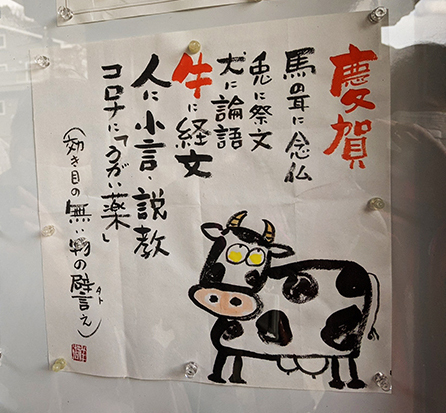 慶賀
馬の耳に念仏
兎に祭文
犬に論語
牛に経文
人に小言・説教
コロナに「うがい薬」
（効き目の無い物の譬言え）
タト